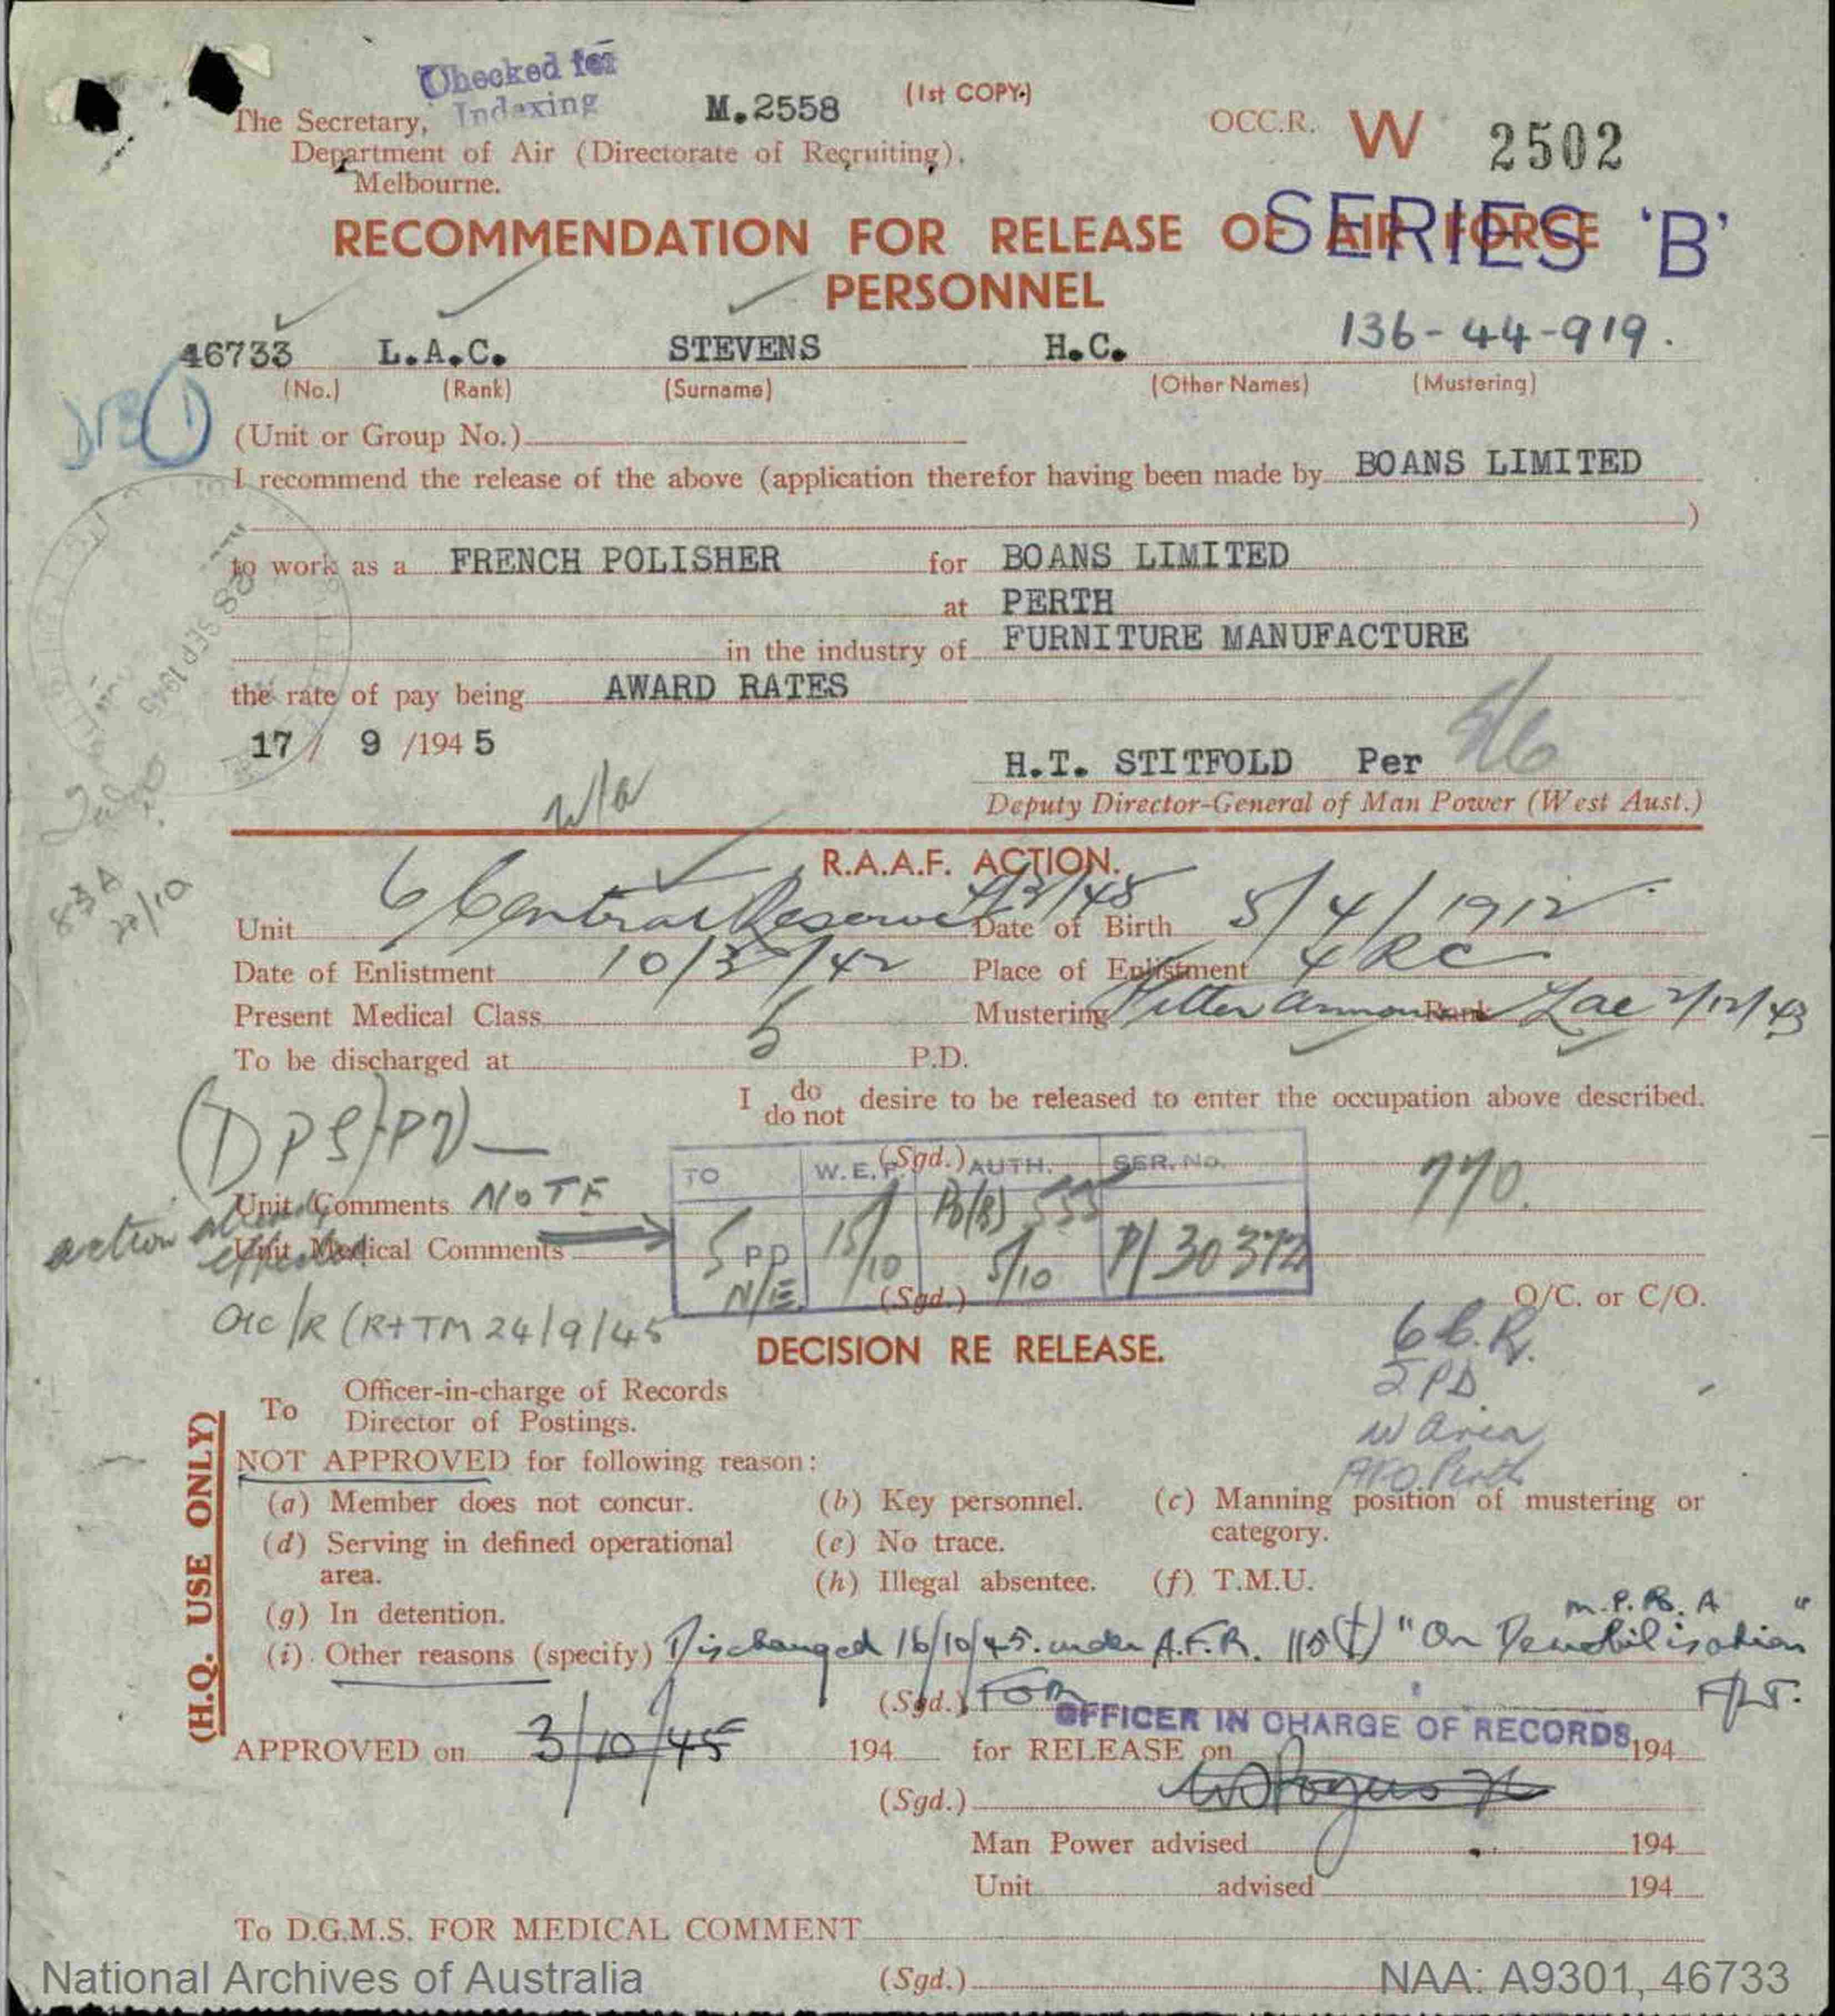 Checked for
Indexing
M.2558
(1st COPY.)
The Secretary,
OCC.R. W 2502
Department of Air (Directorate of Recruiting),
Melbourne.
SERIES 'B'
RECOMMENDATION FOR RELEASE OF AIR FORCE
PERSONNEL
136-44-919.
46733 L.A.C. STEVENS H.C.
(No.) (Rank) (Surname) (Other Names) (Mustering)
(Unit or Group No.)
I recommend the release of the above (application therefor having been made by BOANS LIMITED
)
to work as a FRENCH POLISHER for BOANS LIMITED
at PERTH
in the industry of FURNITURE MANUFACTURE
the rate of pay being AWARD RATES
17 / 9 /1945
H.T. STITFOLD Per
Deputy Director-General of Man Power (West Aust.)
W/a
R.A.A.F. ACTION.
83A
20/10
Unit 6 Central Reserve Date of Birth 5/4/1912
Date of Enlistment 10/3/42 Place of Enlistment 4 RC
Present Medical Class Mustering Fitter Rank Lac 2/12/43
To be discharged at 5 P.D.
I do
do not desire to be released to enter the occupation above described.
(Sgd.)
TO W.E.F. AUTH. SER. No.
770.
Unit Comments NOTE
PO(R) 555
action already
effected
Unit Medical Comments
5 PD 15/10 5/10 P/30372
N/E
(Sgd.)
O/C. or C/O.
OIC/R (R+TM 24/9/45
DECISION RE RELEASE.
6 C.R.
5 PD
W Area
ARO Perth
(H.Q. USE ONLY)
To Officer-in-charge of Records
Director of Postings.
NOT APPROVED for following reason:
(a) Member does not concur. (b) Key personnel. (c) Manning position of mustering or
category.
(d) Serving in defined operational
area. (e) No trace.
(h) Illegal absentee. (f) T.M.U.
(g) In detention.
M.P.R.A
(i) Other reasons (specify) Discharged 16/10/45. under A.F.R. 115(f) "On Demobilisation"
(Sgd.) FOR F/LT.
OFFICER IN CHARGE OF RECORDS
APPROVED on 3/10/45 194 for RELEASE on 194
(Sgd.)
Man Power advised 194
Unit advised 194
To D.G.M.S. FOR MEDICAL COMMENT
(Sgd.)
National Archives of Australia
NAA: A9301, 46733